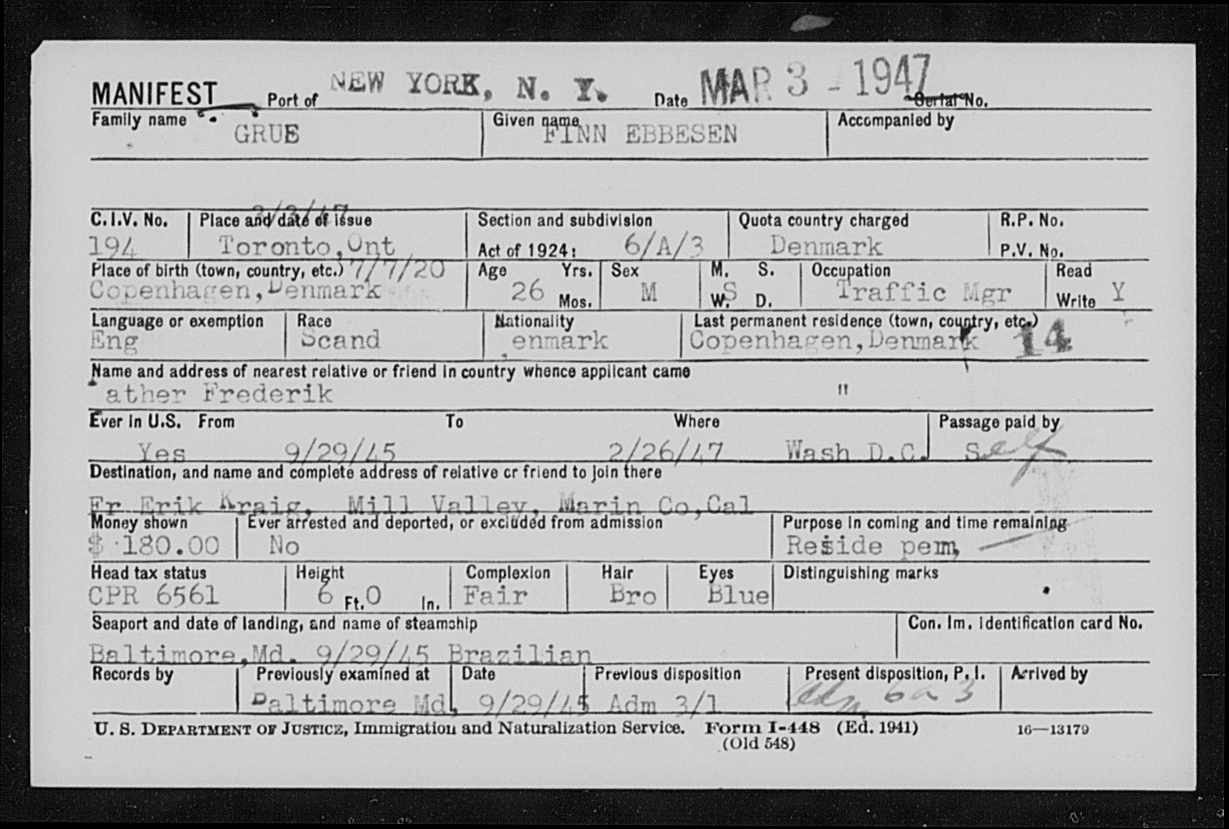 MANIFEST Port of NEW YORK, N. Y. Date MAR 3 - 1947 Serial No.
Family name GRUE Given name FINN EBBESEN Accompanied by
C.I.V. No. Place and date of issue 3/3/47 Section and subdivision Quota country charged R.P. No.
194 Toronto,Ont Act of 1924: 6/A/3 Denmark P.V. No.
Place of birth (town, country, etc.) 7/7/20 Age Yrs. Sex M. S. Occupation Read
Copenhagen,Denmark 26 Mos. M W. S D. Traffic Mgr Write Y
Language or exemption Race Nationality Last permanent residence (town, country, etc.)
Eng Scand enmark Copenhagen,Denmark 14
Name and address of nearest relative or friend in country whence applicant came
ather Frederik "
Ever in U.S. From To Where Passage paid by
Yes 9/29/45 2/26/47 Wash D.C. Self
Destination, and name and complete address of relative or friend to join there
Fr Erik Kraig, Mill Valley, Marin Co,Cal
Money shown Ever arrested and deported, or excluded from admission Purpose in coming and time remaining
$ 180.00 No Reside perm,
Head tax status Height Complexion Hair Eyes Distinguishing marks
CPR 6561 6 Ft. 0 In. Fair Bro Blue
Seaport and date of landing, and name of steamship Con. Im. Identification card No.
Baltimore,Md. 9/29/45 Brazilian
Records by Previously examined at Date Previous disposition Present disposition, P. I. Arrived by
Baltimore Md, 9/29/45 Adm 3/1 adm 6a3
U. S. DEPARTMENT OF JUSTICE, Immigration and Naturalization Service. Form I-448 (Ed. 1941) 16—13179
(Old 548)